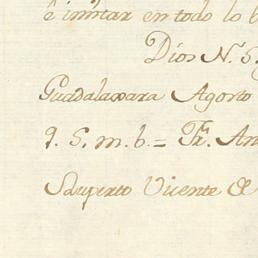 é imitar en todo lo b
Dios N. S.
Guadalaxara Agosto
q. S. m. b. = Fr. An
Vicente